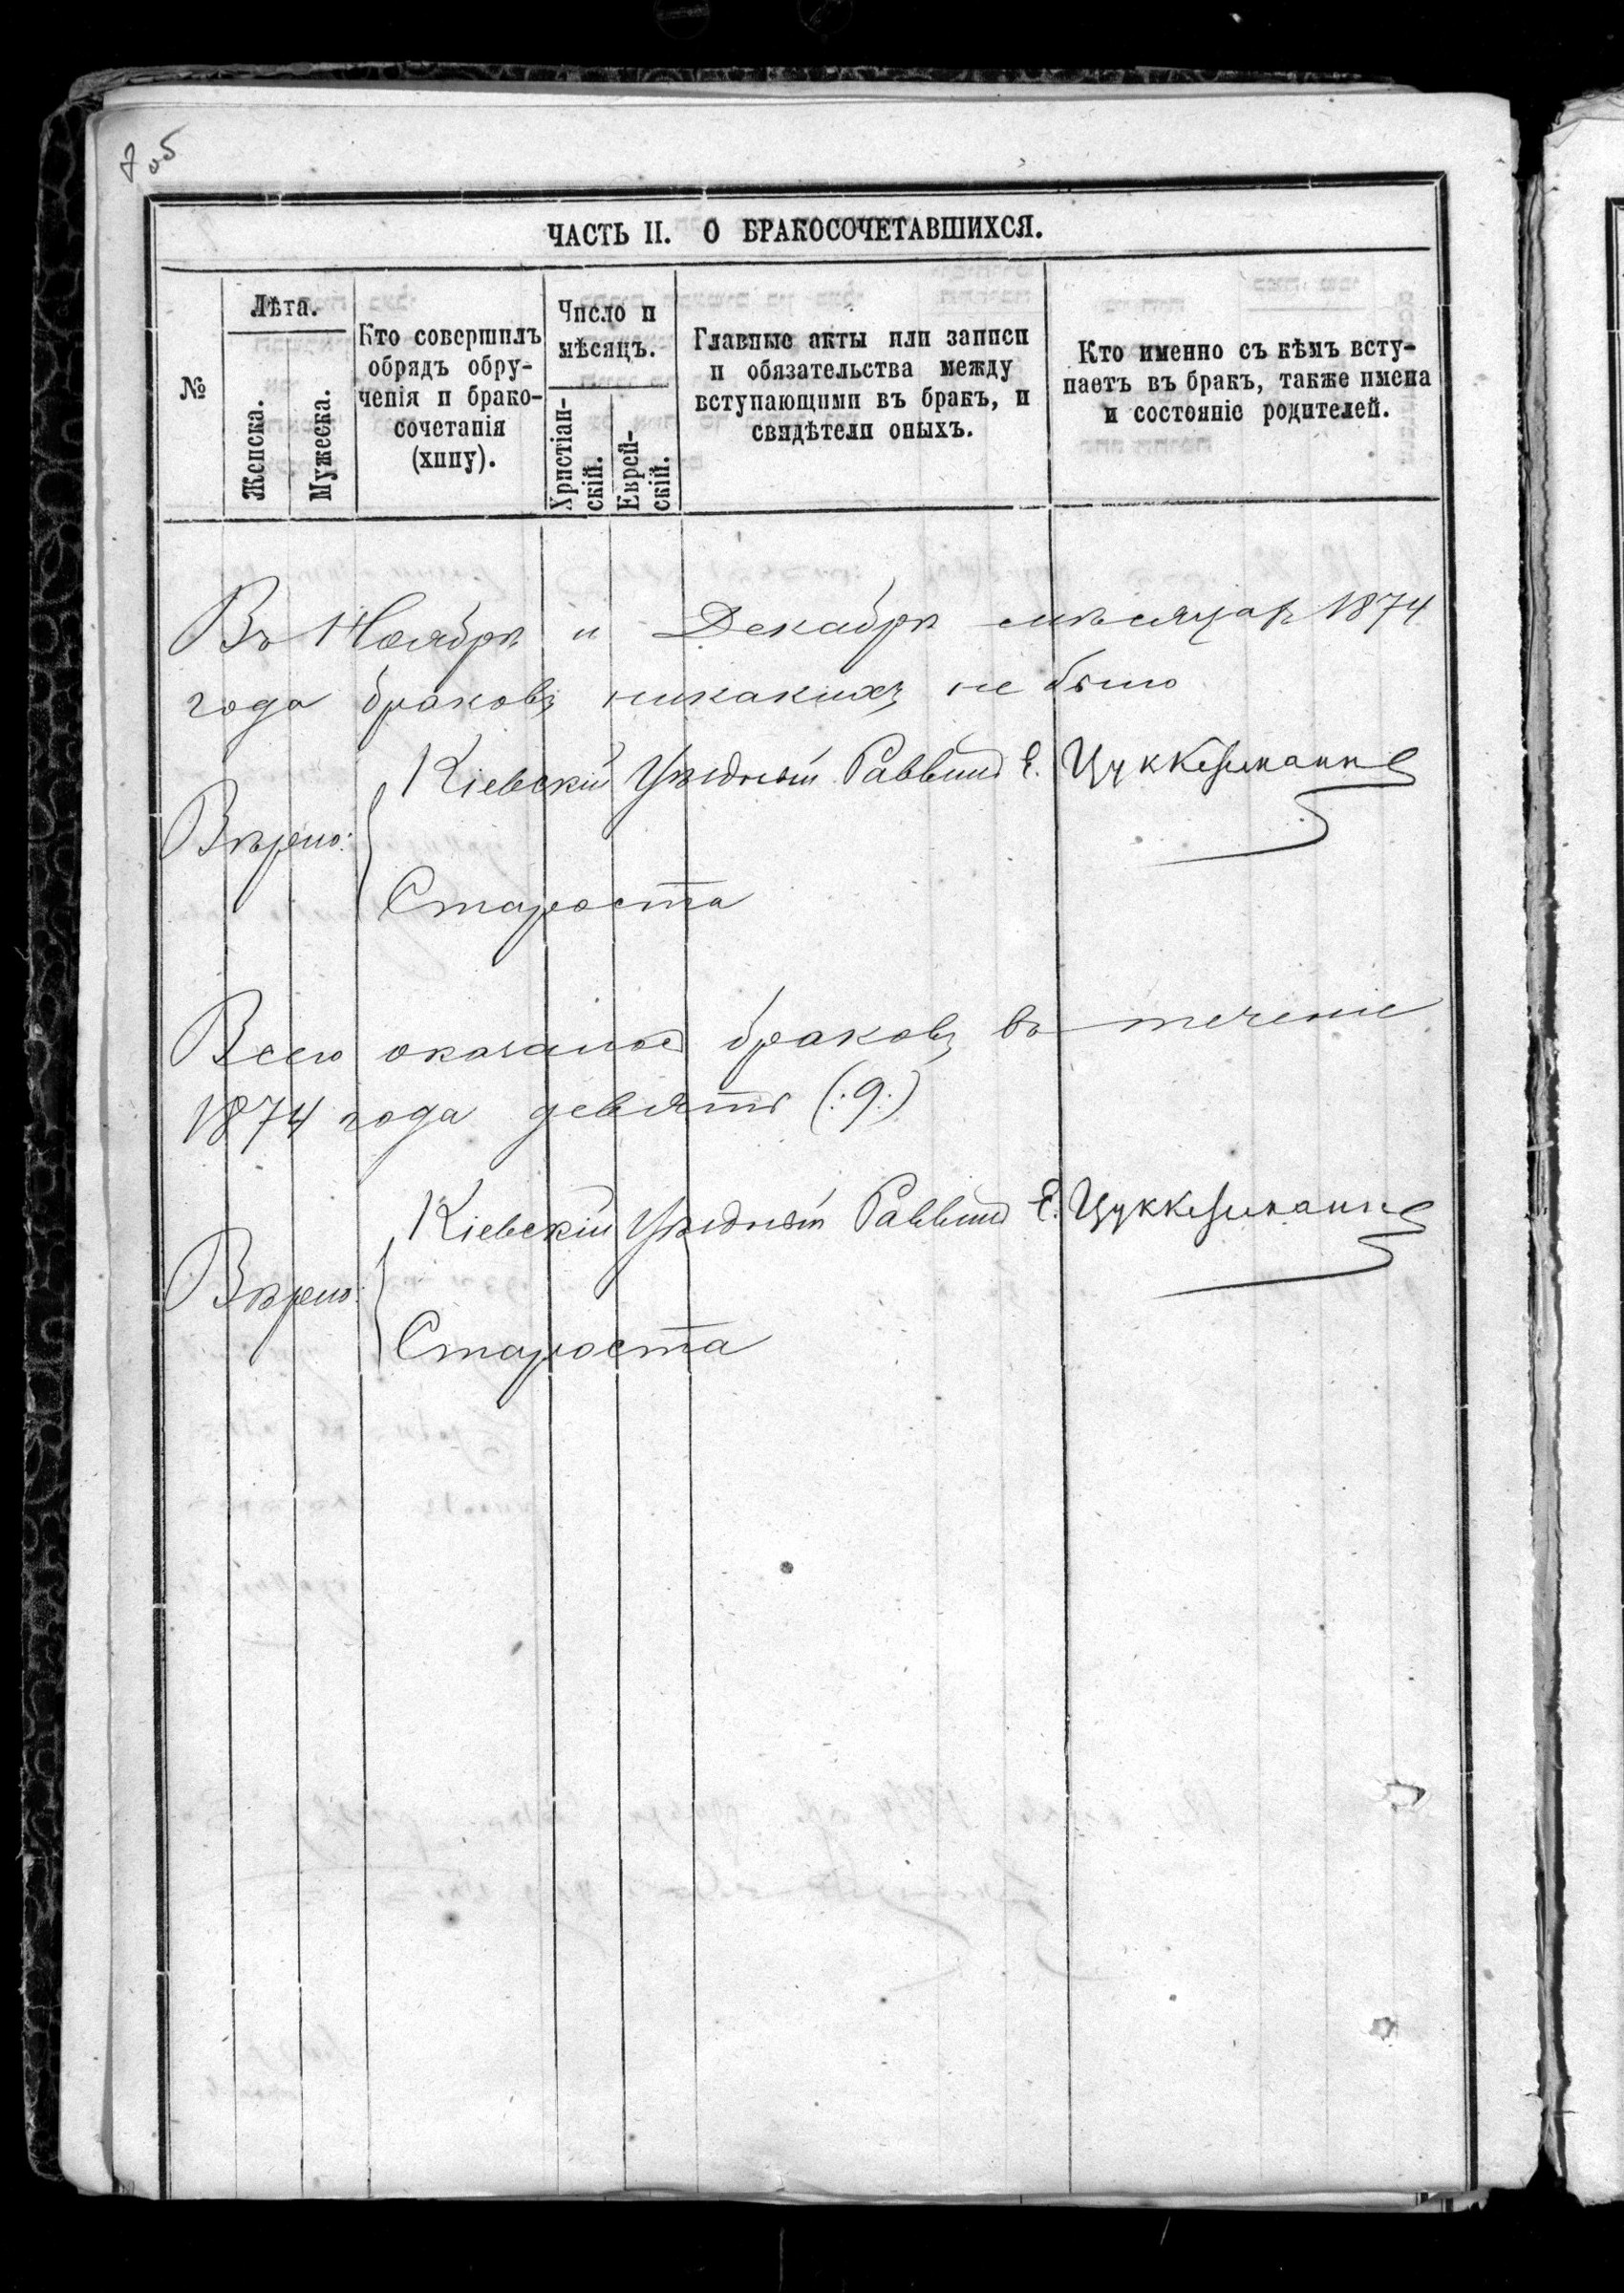 7 об
ЧАСТЬ II. О БРАКОСОЧЕТАВШИХСЯ.
№
Лѣта.
Женска.
Мужеска.
Кто совершилъ
обрядъ обру-
ченія и брако-
сочетанія
(хипу).
Число и
мѣсяцъ.
Христіан-
скій.
Еврей-
скій.
Главные акты или записи
и обязательства между
вступающими въ бракъ, и
свидѣтели оныхъ.
Кто именно съ кѣмъ всту-
паетъ въ бракъ, также имена
и состояніе родителей.
Въ Ноябрѣ и Декабрѣ мѣсяцах 1874
года браковъ никакихъ не было
Кіевскій Уѣздный Раввинъ Е. Цуккерманнъ
Вѣрно:
Староста
Всего оказалось браковъ въ теченіе
1874 года девять (:9:)
Кіевскій Уѣздный Раввинъ Е. Цуккерманнъ
Вѣрно:
Староста